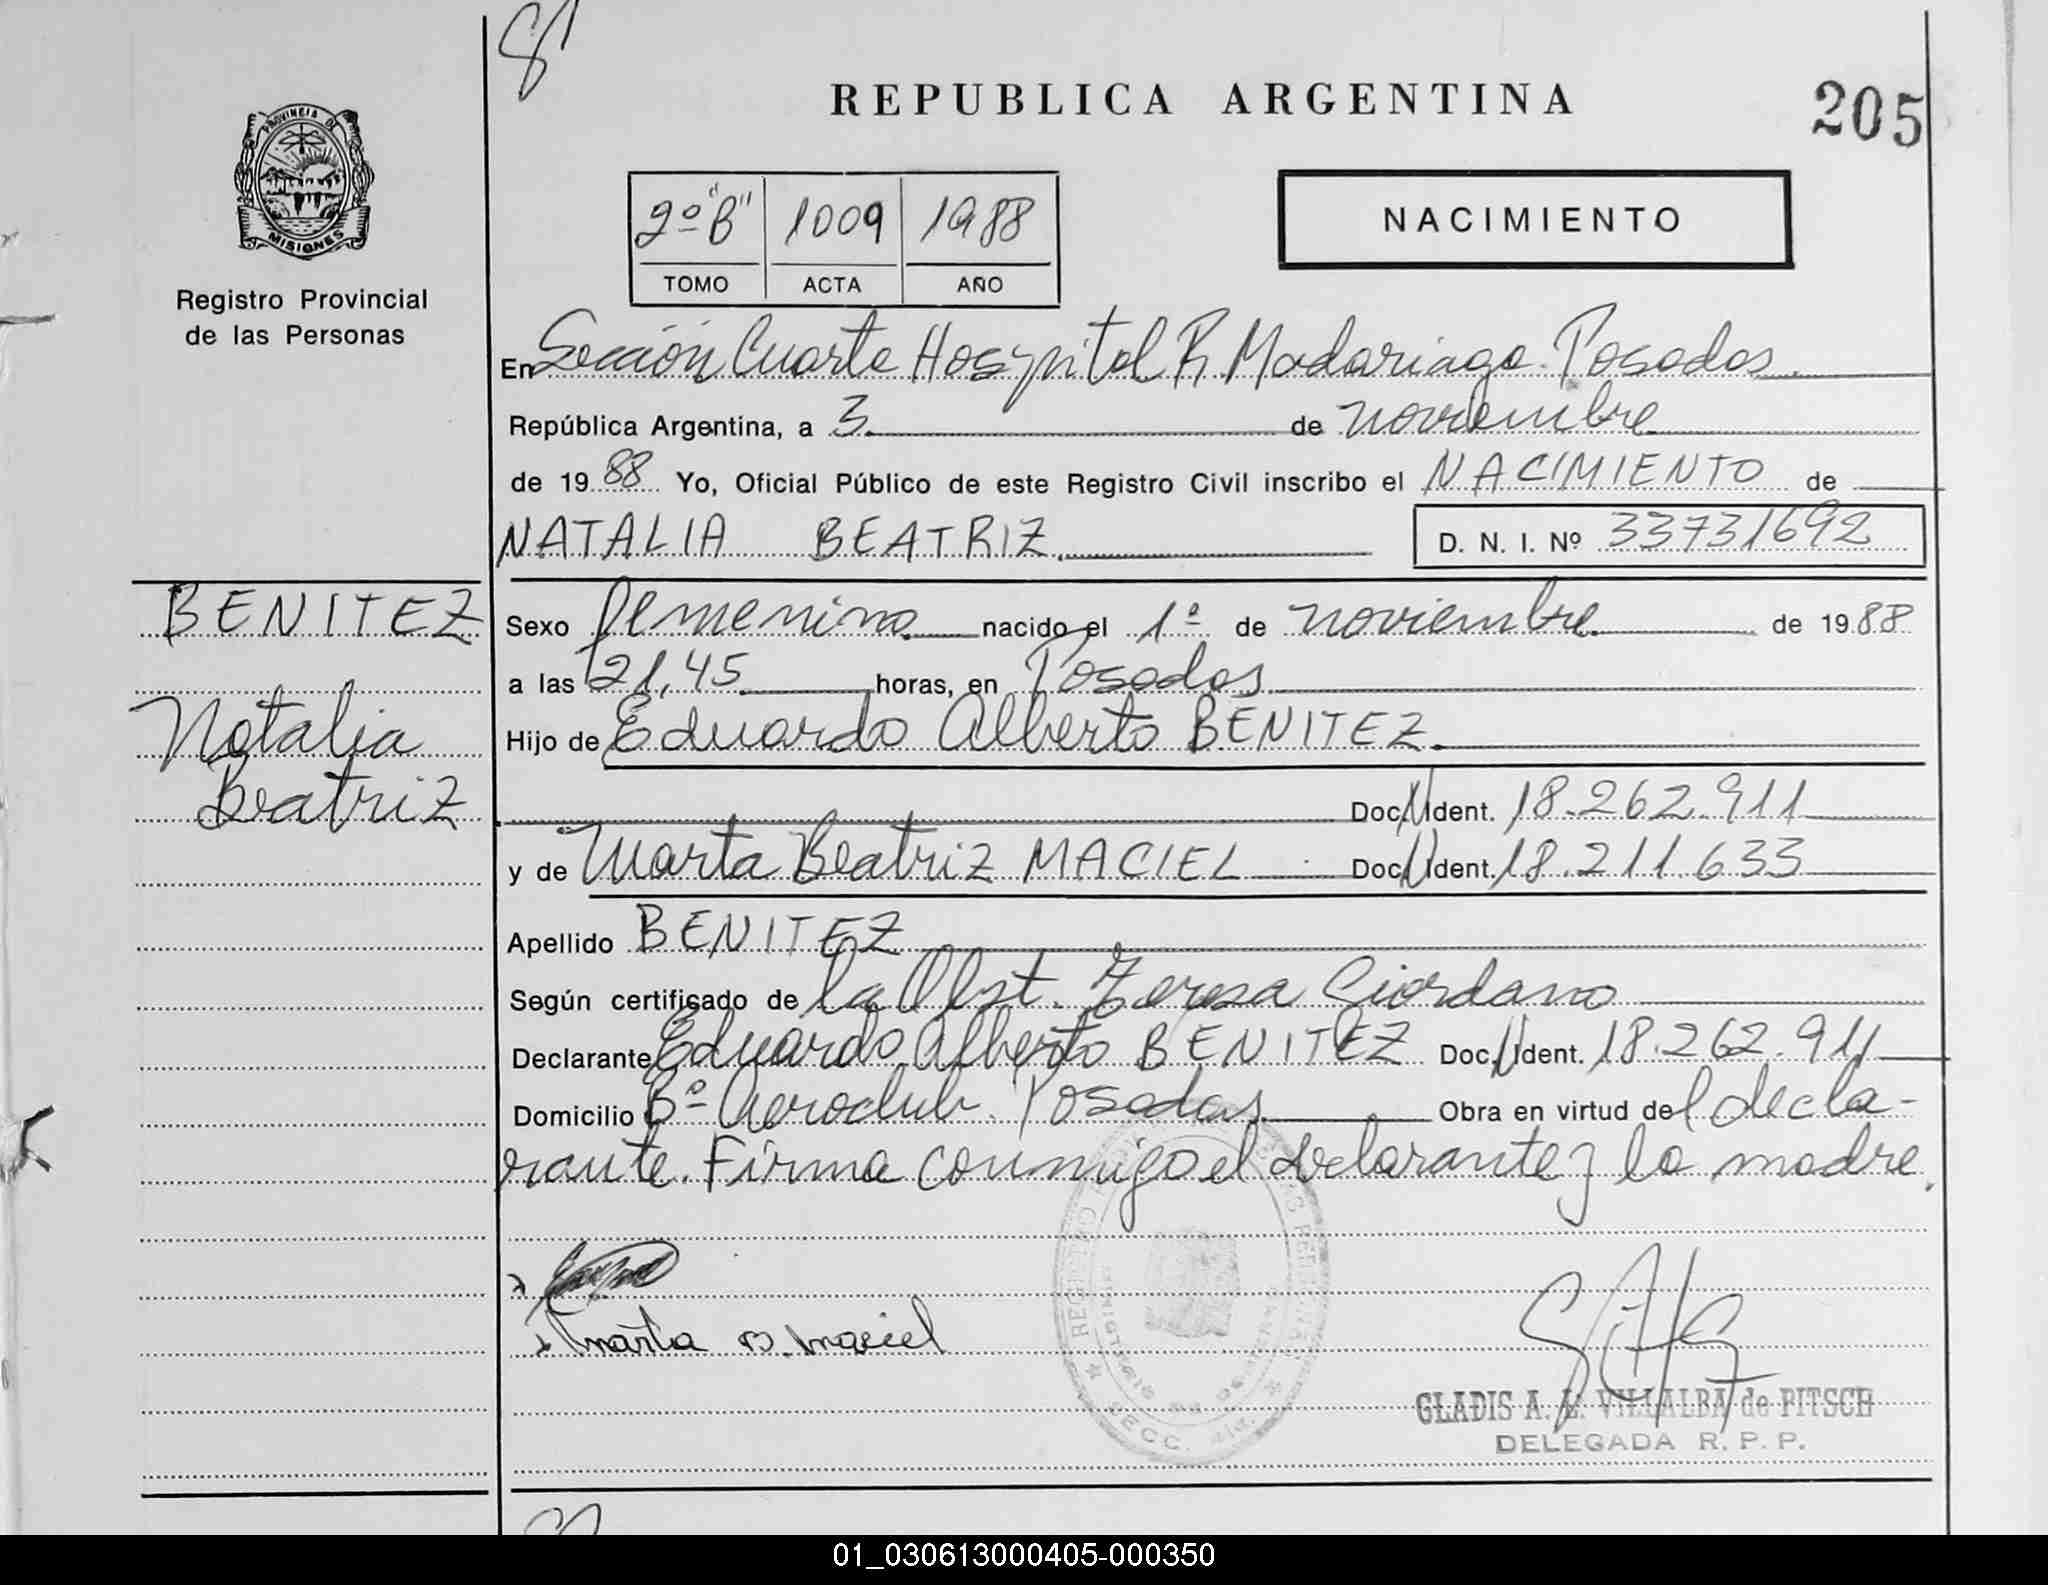 REPUBLICA ARGENTINA
205
PROVINCIA DE
MISIONES
Registro Provincial
de las Personas
2º "B" 1009 1988
TOMO ACTA AÑO
NACIMIENTO
En Sección Cuarta Hospital R Madariaga. Posadas.
República Argentina, a 3. de noviembre
de 1988 Yo, Oficial Público de este Registro Civil inscribo el NACIMIENTO de
NATALIA BEATRIZ. D. N. I. Nº 33731692
BENITEZ
Natalia
Beatriz
Sexo femenino nacido el 1º de noviembre de 1988
a las 21,45 horas, en Posadas
Hijo de Eduardo Alberto BENITEZ.
Doc. Ident. 18.262.911
y de Marta Beatriz MACIEL Doc. Ident. 18.211.633
Apellido BENITEZ
Según certificado de la Obst. Teresa Giordano
Declarante Eduardo Alberto BENITEZ Doc. Ident. 18.262.911
Domicilio Bº Aeroclub. Posadas. Obra en virtud del decla-
rante. Firma conmigo el declarante y la madre.
Marta B. Maciel
REGISTRO
SECC.
GLADIS A. L. VILLALBA de PITSCH
DELEGADA R. P. P.
01_030613000405-000350